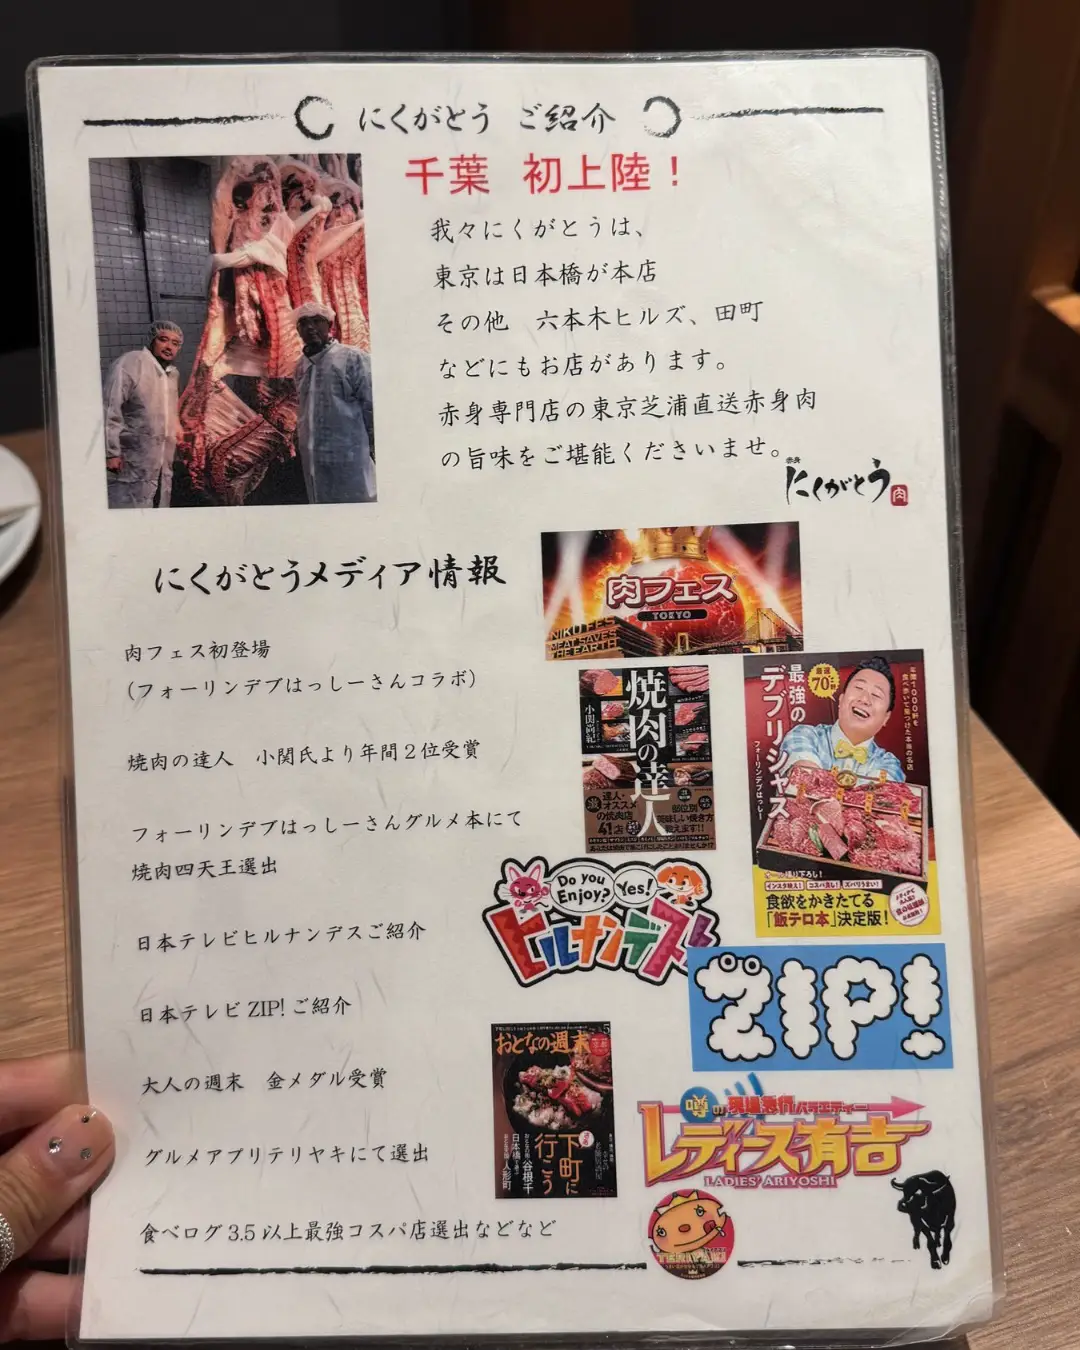 にくがとう ご紹介
千葉 初上陸！
我々にくがとうは、
東京は日本橋が本店
その他 六本木ヒルズ、田町
などにもお店があります。
赤身専門店の東京芝浦直送赤身肉
の旨味をご堪能くださいませ。
赤身
にくがとう
肉
にくがとうメディア情報
肉フェス
TOKYO
NIKU FES
MEAT SAVES
THE EARTH
肉フェス初登場
（フォーリンデブはっしーさんコラボ）
焼肉の達人 小関氏より年間２位受賞
フォーリンデブはっしーさんグルメ本にて
焼肉四天王選出
日本テレビヒルナンデスご紹介
日本テレビ ZIP! ご紹介
大人の週末 金メダル受賞
グルメアプリテリヤキにて選出
食べログ 3.5 以上最強コスパ店選出などなど
焼肉の達人
小関尚紀
達人・
オススメ
の焼肉店
41店
部位別
美味しい焼き方
教えます!!
最強の
デブリシャス
フォーリンデブはっしー
厳選
70軒
年間1000軒を
食べ歩いて見つけた本当の名店
オール撮り下ろし！
インスタ映え！ コスパ良し！ ズバリうまい！
食欲をかきたてる
「飯テロ本」決定版！
Do you
Enjoy?
Yes!
ヒルナンデス！
ZIP!
おとなの週末
5
下町に
行こう
谷根千
日本橋
人形町
噂の現場急行バラエティー
レディース有吉
LADIES' ARIYOSHI
TERIYAKI